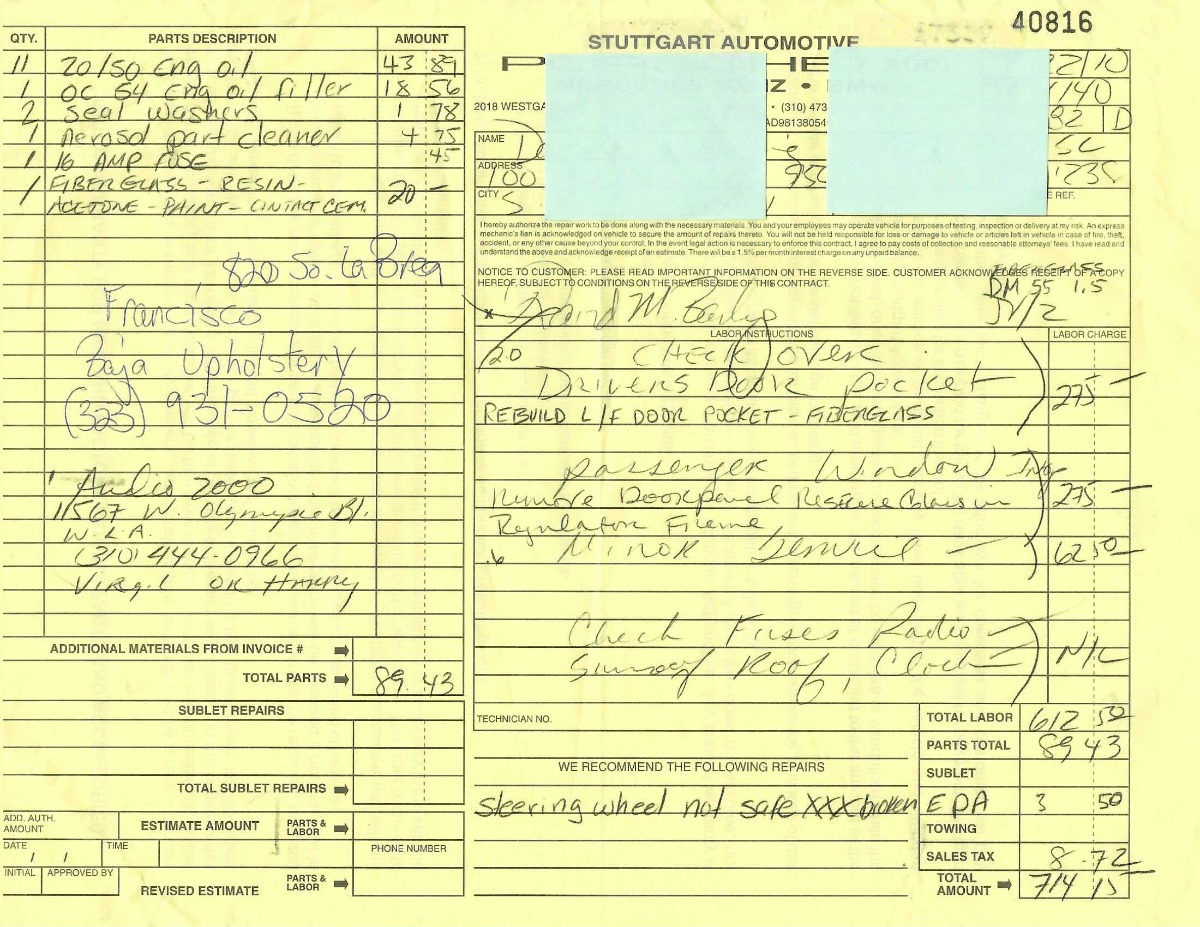 40816
QTY. PARTS DESCRIPTION AMOUNT
11 20/50 Eng oil 43 89
1 OC 64 Eng oil filler 18 56
2 Seal washers 1 78
1 Aerosol part cleaner 4 75
1 16 AMP FUSE 45
1 FIBERGLASS - RESIN- 20 -
ACETONE - PAINT - CONTACT CEM.
820 So. La Brea
Francisco
Baja Upholstery
(323) 931-0520
Audio 2000
11567 W. Olympic Bl.
W.L.A.
(310) 444-0966
Virgil OR Harry
ADDITIONAL MATERIALS FROM INVOICE #
TOTAL PARTS 89.43
SUBLET REPAIRS
TOTAL SUBLET REPAIRS
ADD. AUTH. AMOUNT
ESTIMATE AMOUNT PARTS & LABOR
DATE / / TIME PHONE NUMBER
INITIAL APPROVED BY
REVISED ESTIMATE PARTS & LABOR
STUTTGART AUTOMOTIVE
P HE
NZ •
2018 WESTGA • (310) 473
AD98138054
2/10
140
82 D
NAME
SC
ADDRESS
100 950 1235
CITY S E REF.
I hereby authorize the repair work to be done along with the necessary materials. You and your employees may operate vehicle for purposes of testing, inspection or delivery at my risk. An express
mechanic's lien is acknowledged on vehicle to secure the amount of repairs thereto. You will not be held responsible for loss or damage to vehicle or articles left in vehicle in case of fire, theft,
accident, or any other cause beyond your control. In the event legal action is necessary to enforce this contract, I agree to pay costs of collection and reasonable attorneys' fees. I have read and
understand the above and acknowledge receipt of an estimate. There will be a 1.5% per month interest charge on any unpaid balance.
NOTICE TO CUSTOMER: PLEASE READ IMPORTANT INFORMATION ON THE REVERSE SIDE. CUSTOMER ACKNOWLEDGES RECEIPT OF A COPY
HEREOF, SUBJECT TO CONDITIONS ON THE REVERSE SIDE OF THIS CONTRACT.
FIBERGLASS
DM 55 1.5
JV/2
X David M.
LABOR INSTRUCTIONS LABOR CHARGE
2.0 CHECK OVER
DRIVERS DOOR pocket 275 -
REBUILD L/F DOOR POCKET - FIBERGLASS
passenger Window Inop
Remove Doorpanel Resecure Glass in 275 -
Regulator Frame,
.6 Minor Service - 62 50
Check Fuses Radio
Sunroof Roof, Clock N/C
TECHNICIAN NO.
TOTAL LABOR 612 50
PARTS TOTAL 89 43
WE RECOMMEND THE FOLLOWING REPAIRS
SUBLET
steering wheel not safe XXX broken
EPA 3 50
TOWING
SALES TAX 8.72
TOTAL AMOUNT 714 15